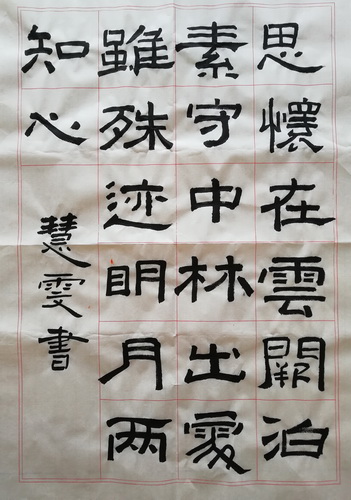 思懷在雲闕泊
素守中林出處
雖殊迹明月两
知心
慧雯書